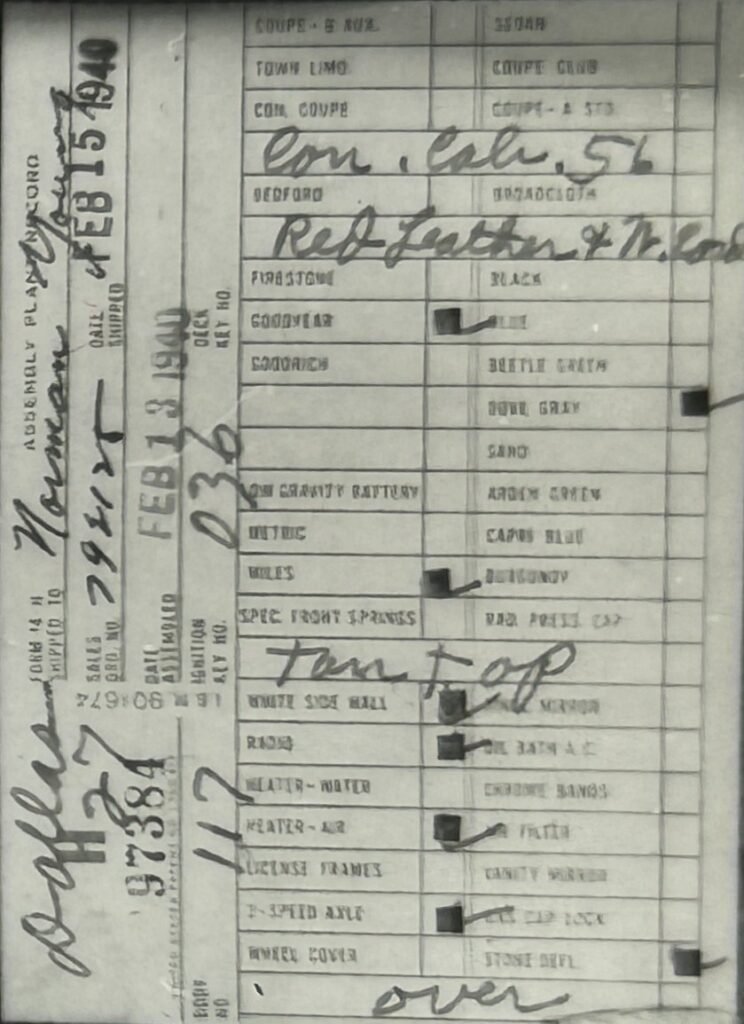 ASSEMBLY PLANT RECORD
FORM 14 H
SHIPPED TO Norman Young
SALES ORD. NO
DATE SHIPPED FEB 15 1940
DATE ASSEMBLED FEB 13 1940
IGNITION KEY NO. 036
DECK KEY NO.
H 27
97384
BODY NO 117
COUPE - 5 AUX. SEDAN
TOWN LIMO COUPE CLUB
CON. COUPE COUPE - A STS
Con. Cab. 56
BEDFORD BROADCLOTH
Red Leather & W. Cord
FIRESTONE BLACK
GOODYEAR BLUE
GOODRICH BEETLE GREEN
DOVE GRAY
SAND
LOW GRAVITY BATTERY ARDEN GREEN
METRIC CAPRI BLUE
MILES BURGUNDY
SPEC FRONT SPRINGS RAD. PRESS CAP
Tan top
WHITE SIDE WALL MIRROR
RADIO OIL BATH A.C.
HEATER - WATER CHROME BANDS
HEATER - AIR FILTER
LICENSE FRAMES VANITY MIRROR
2-SPEED AXLE GAS CAP LOCK
WHEEL COVER STONE DEFL.
over